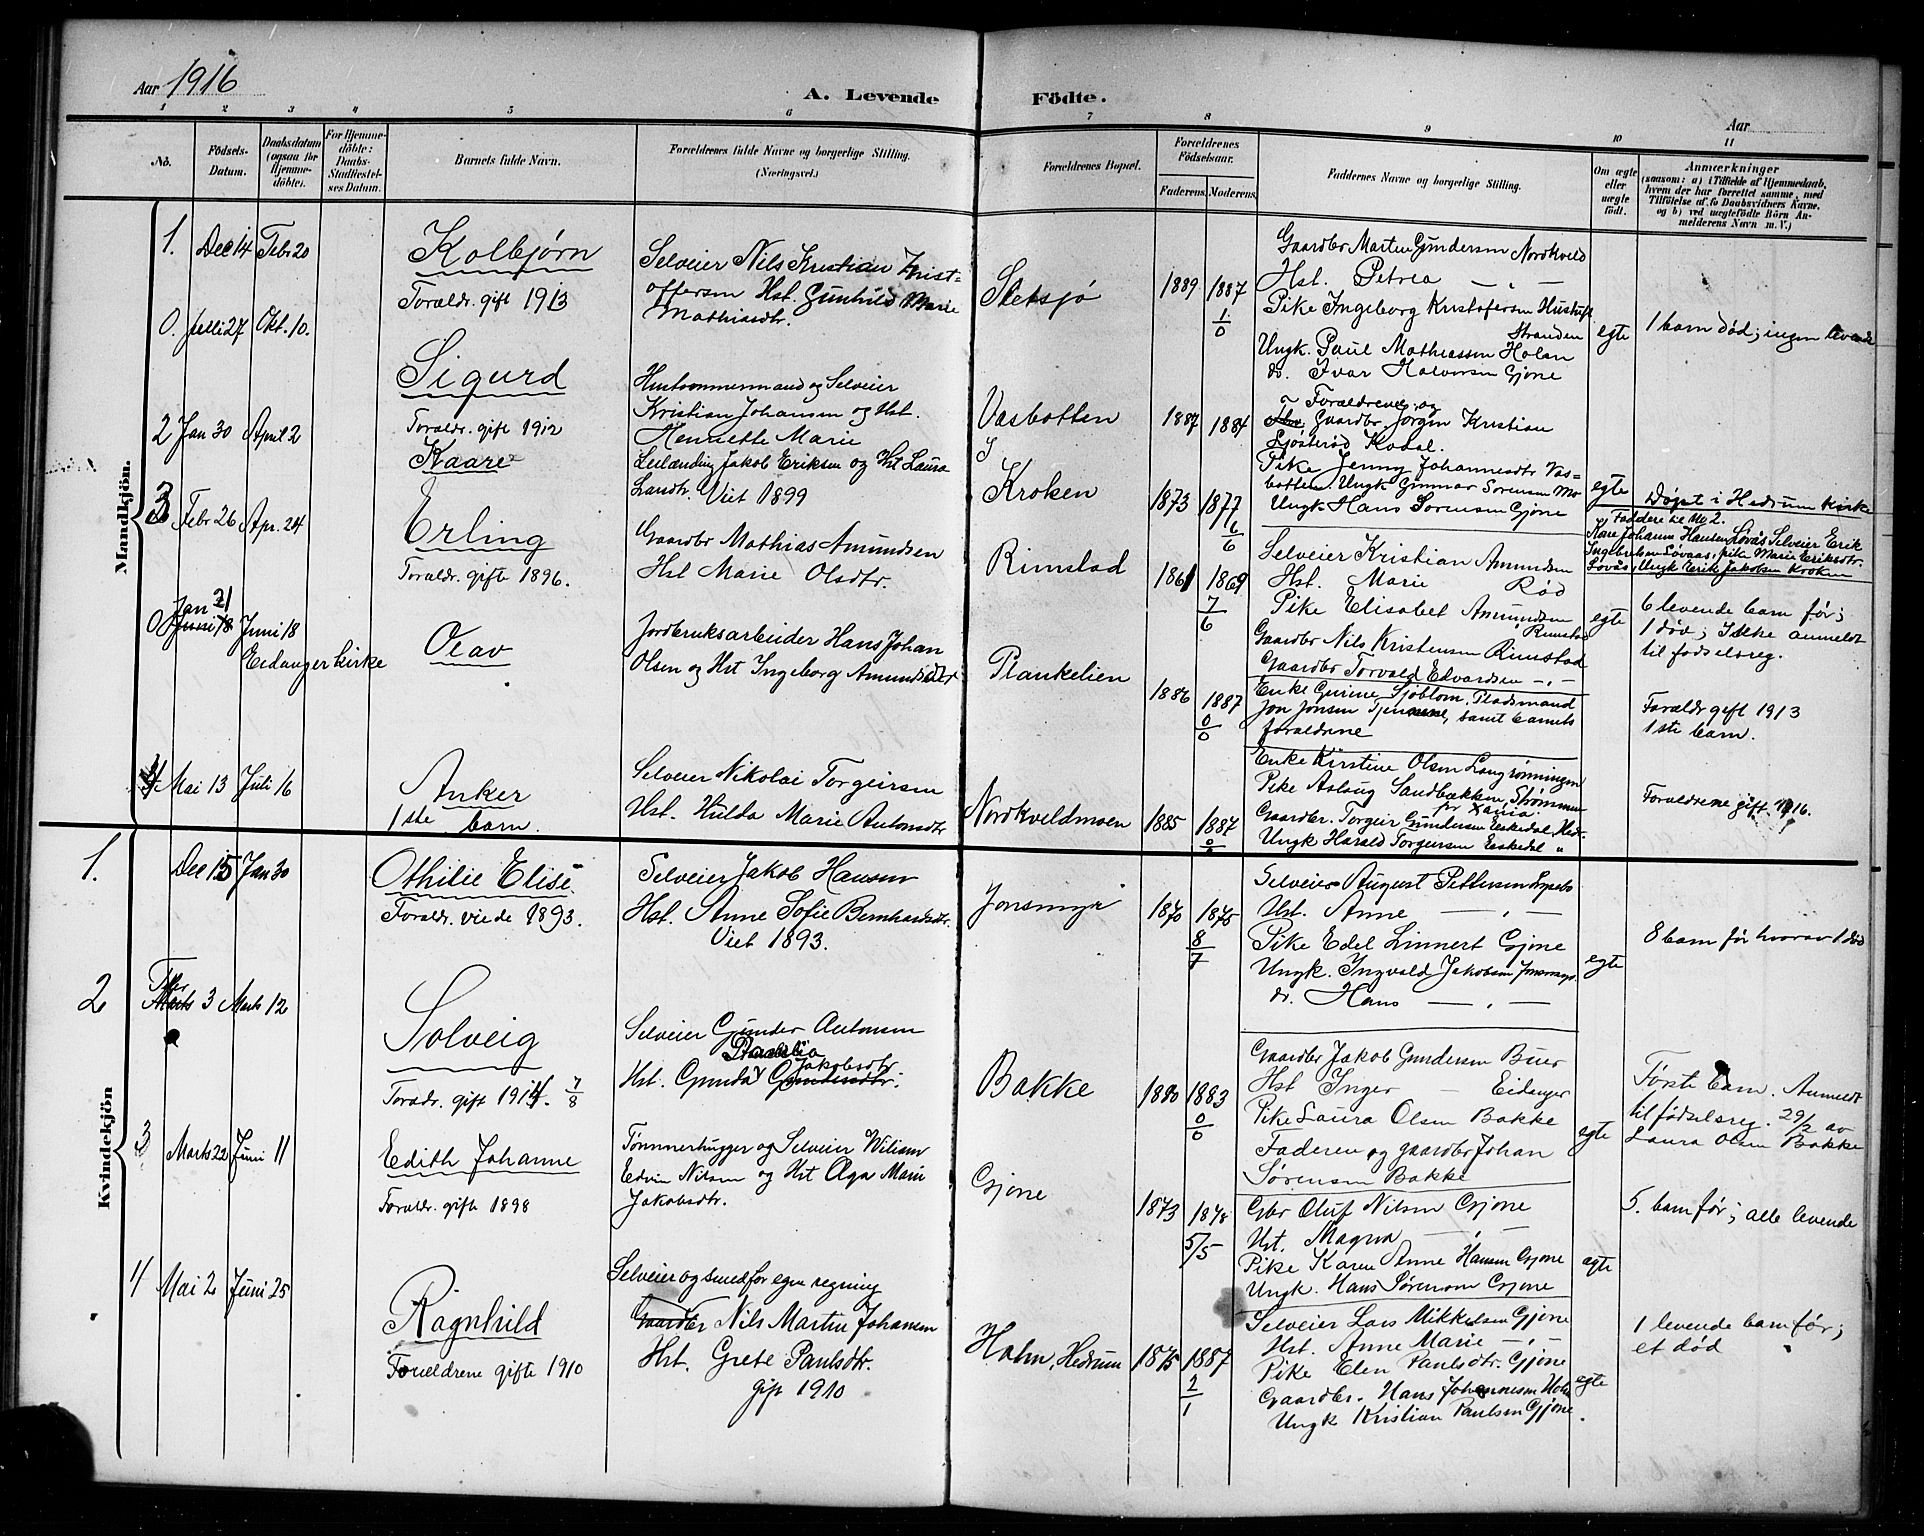 Aar 1916
A. Levende Födte.
Aar
1 2 3 4 5 6 7 8 9 10 11
No.
Födsels-Datum.
Daabsdatum (ogsaa for Hjemmedöbte).
For Hjemmedöbte: Daabs-Stadfæstelses Datum.
Barnets fulde Navn.
Forældrenes fulde Navne og borgerlige Stilling.
(Næringsvei.)
Forældrenes Bopæl.
Forældrenes Födselsaar.
Faderens. Moderens.
Faddernes Navne og borgerlige Stilling.
Om ægte eller uægte födt.
Anmærkninger
(saasom: a) i Tilfælde af Hjemmedaab, hvem der har forrettet samme, med Tilföielse af to Daabsvidners Navne, og b) ved uægtefödte Börn Anmelderens Navn m. V.)
Mandkjön.
1. Dec 14 Febr 20
Kolbjørn
Forældr. gift 1913
Selveier Nils Kristian Krist-
offersen Hst. Gunhild Marie
Mathiasdtr.
Sletsjø
1889 1887
1/0
Gaardbr Marten Gundersen Nordkveld
Hst. Petrea — „ —
Pike Ingeborg Kristofersen
Stranden
Ungk. Paul Mathiassen Holan
do. Ivar Halvorsen Gjone
egte
1 barn død; ingen levende
0. Juli 27 Okt. 10.
Sigurd
Forældr. gift 1912
Hustømmermand og Selveier
Kristian Johansen og Hst.
Henriette Marie
Vasbotten
1887 1884
Forældrene og
Gaardbr. Jørgen Kristian
Sjøsterød Kodal.
Pike Jenny Johannesdtr Vas-
botten Ungk Gunnar Sorensen Mo
Ungk Hans Sorensen Gjone
egte
Døpt i Hedrum kirke
2 Jan 30 April 2
Kaare
Leilænding Jakob Eriksen og Hst Laura
Viet 1899
Kroken
1873 1877
6/6
Faddere til No 2.
Kare Johanne Hansen Løvås Selveier Erik
Ingebretsen Løvaas, pike Marie Eriksdtr.
Løvås, Ungk Erik Jakobsen Kroken
3 Febr 26 Apr. 24
Erling
Forældr. gifte 1896.
Gaardbr Mathias Amundsen
Hst Marie Olsdtr.
Rimstad
1861 1869
7/6
Selveier Kristian Amundsen
Hst. Marie Rød
Pike Elisabet Amundsen
Rimstad
Gaardbr Nils Kristensen Rimstad
Gaardbr Torvald Edvardsen — „ —
egte
6 levende barn før;
1 død; Ikke anmeldt
til fødselsreg.
0 Jan 21 Juni 18
Eidanger kirke
Olav
Jordbruksarbeider Hans Johan
Olsen og Hst Ingeborg Amundsdtr
Plankelien
1886 1887
0/0
Enke Gurine Sjøblom, Pladsmand
Jon Jonsen, samt barnets
forældrene
Forældr gift 1913
1ste barn.
4 Mai 13 Juli 16
Anker
1ste barn.
Selveier Nikolai Torgeirsen
Hst. Hulda Marie Antonsdtr
Nordkveldmoen
1885 1887
Enke Kirstine Olsen Langrønningen
Pike Aslaug Sandbækken, Strømmen
Gaardbr. Torgeir Gundersen Eeskedal, Hed.
Ungk Harald Torgeirsen Eeskedal „
Forældrene gift 1916.
Kvindekjön
1. Dec 15 Jan 30
Othilie Elise
Forældr. viede 1893.
Selveier Jakob Hansen
Hst. Anne Sofie Bernhardsdtr.
Viet 1893.
Jonsmyr
1870 1875
8/7
Selveier August Pettersen
Hst. Anne — „ —
Pike Edel Linnert Gjone
Ungk. Ingvald Jakobsen Jonsmyr
do. Hans — „ —
egte
8 barn før hvorav 1 død
2 Febr 3 Marts 12
Solveig
Forældr. gift 1914. 7/8
Selveier Gunder Antonsen
Hst. Gunda Jakobsdtr.
Bakke
1880 1883
0/0
Gaardbr Jakob Gundersen Buer
Hst Inger — Eidanger
Pike Laura Olsen Bakke
Faderen og gaardbr Johan
Sørensen Bakke
egte
Første barn. Anmeldt
til fødselsreg. 29/2 av
Laura Olsen Bakke
3 Marts 22 Juni 11
Edith Johanne
Forældr. gifte 1898
Tømmerhugger og Selveier Wiliam
Edvin Nilsen og Hst Olga Marie
Jakobsdtr.
Gjone
1873 1878
5/5
Gbr Oluf Nilsen Gjone
Hst. Magna — „ —
Pike Karen Anne Hansen Gjone
Ungk. Hans Sørensen Gjone
egte
5. barn før; alle levende
4 Mai 2 Juni 25
Ragnhild
Forældrene gifte 1910
Selveier og smed for egen regning
Gaardbr Nils Martin Johansen
Hst. Grete Paulsdtr.
gift 1910
Holm, Hedrum
1875 1887
2/1
Selveier Lars Mikkelsen Gjone
Hst. Anne Marie — „ —
Pike Elen Paulsdtr. Gjone
Gaardbr. Hans Johannesen Holm
Ungk Kristian Paulsen Gjone.
egte
1 levende barn før;
et død